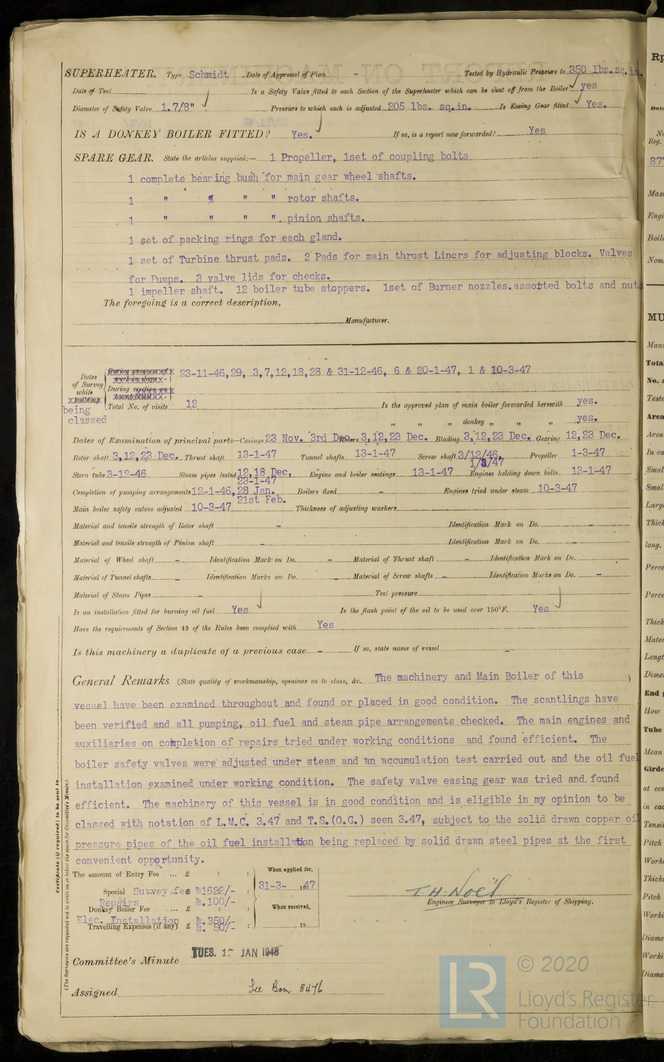 SUPERHEATER. Type Schmidt Date of Approval of Plan - Tested by Hydraulic Pressure to 350 lbs.sq.in.
Date of Test Is a Safety Valve fitted to each Section of the Superheater which can be shut off from the Boiler yes
Diameter of Safety Valve 1.7/8" Pressure to which each is adjusted 205 lbs. sq.in. Is Easing Gear fitted Yes.
IS A DONKEY BOILER FITTED? Yes. If so, is a report now forwarded? Yes
SPARE GEAR. State the articles supplied:— 1 Propeller, 1set of coupling bolts
1 complete bearing bush for main gear wheel shafts.
1 " " " " rotor shafts.
1 " " " " pinion shafts.
1 set of packing rings for each gland.
1 set of Turbine thrust pads. 2 Pads for main thrust Liners for adjusting blocks. Valves
for Pumps. 3 valve lids for checks.
1 impeller shaft. 12 boiler tube stoppers. 1set of Burner nozzles.assotted bolts and nuts
The foregoing is a correct description,
Manufacturer.
Dates of Survey while being classed
23-11-46,29, 3,7,12,18,28 & 31-12-46, 6 & 20-1-47, 1 & 10-3-47
Total No. of visits 12 Is the approved plan of main boiler forwarded herewith yes.
" " " donkey " " " yes.
Dates of Examination of principal parts—Casings 23 Nov. 3rd Dec. Rotors 3,12,23 Dec. Blading 3,12,23 Dec. Gearing 12,23 Dec.
Rotor shaft 3,12,23 Dec. Thrust shaft 13-1-47 Tunnel shafts 13-1-47 Screw shaft 3/12/46, 1/3/47 Propeller 1-3-47
Stern tube 3-12-46 Steam pipes tested 12,18 Dec, 23-1-47 Engine and boiler seatings 13-1-47 Engines holding down bolts 13-1-47
Completion of pumping arrangements 12-1-46, 28 Jan. 21st Feb. Boilers fixed - Engines tried under steam 10-3-47
Main boiler safety valves adjusted 10-3-47 Thickness of adjusting washers
Material and tensile strength of Rotor shaft - Identification Mark on Do. -
Material and tensile strength of Pinion shaft - Identification Mark on Do.
Material of Wheel shaft - Identification Mark on Do. - Material of Thrust shaft - Identification Mark on Do. -
Material of Tunnel shafts - Identification Marks on Do. - Material of Screw shafts - Identification Marks on Do. -
Material of Steam Pipes - Test pressure
Is an installation fitted for burning oil fuel Yes Is the flash point of the oil to be used over 150°F. Yes
Have the requirements of Section 49 of the Rules been complied with Yes
Is this machinery a duplicate of a previous case - If so, state name of vessel -
General Remarks (State quality of workmanship, opinions as to class, &c. The machinery and Main Boiler of this )
vessel have been examined throughout and found or placed in good condition. The scantlings have
been verified and all pumping, oil fuel and steam pipe arrangements checked. The main engines and
auxiliaries on completion of repairs tried under working conditions and found efficient. The
boiler safety valves were adjusted under steam and an accumulation test carried out and the oil fuel
installation examined under working condition. The safety valve easing gear was tried and found
efficient. The machinery of this vessel is in good condition and is eligible in my opinion to be
classed with notation of L.M.C. 3.47 and T.S.(O.G.) seen 3.47, subject to the solid drawn copper oil
pressure pipes of the oil fuel installation being replaced by solid drawn steel pipes at the first
convenient opportunity.
The amount of Entry Fee ... £ : : When applied for,
Special Survey fee 1622/- : 31-3- 1947
Repairs .100/-
Donkey Boiler Fee ... £ When received,
Elec. Installation .350/-
Travelling Expenses (if any) £ 50/- 19
T H Noël
Engineer Surveyor to Lloyd's Register of Shipping.
Committee's Minute TUES. JAN 1948
Assigned See Bom 8476
Certificate (if required) to be sent to
(The Surveyors are requested not to write on or below the space for Committee's Minute.)
LR
© 2020
Lloyd's Register
Foundation